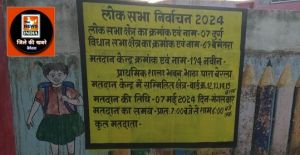 NEWS
INDIA
जिले की खबरें
बेमेतरा
लोक सभा निर्वाचन 2024
लोक सभा क्षेत्र का क्रमांक एवं नाम-07 दुर्ग
विधान सभा क्षेत्र का क्रमांक एवं नाम-69 बेमेतरा
मतदान केन्द्र क्रमांक एवं नाम-194 नवीन
प्राथमिक शाला भवन भाठा पारा बेरला
मतदान केन्द्र में सम्मिलित क्षेत्र-वार्ड क्र. 12,13,14,15
मतदान की तिथि-07 मई 2024 दिन-मंगलवार
मतदान का समय-प्रातः 7:00 बजे से शाम 6:00
कुल मतदाता-